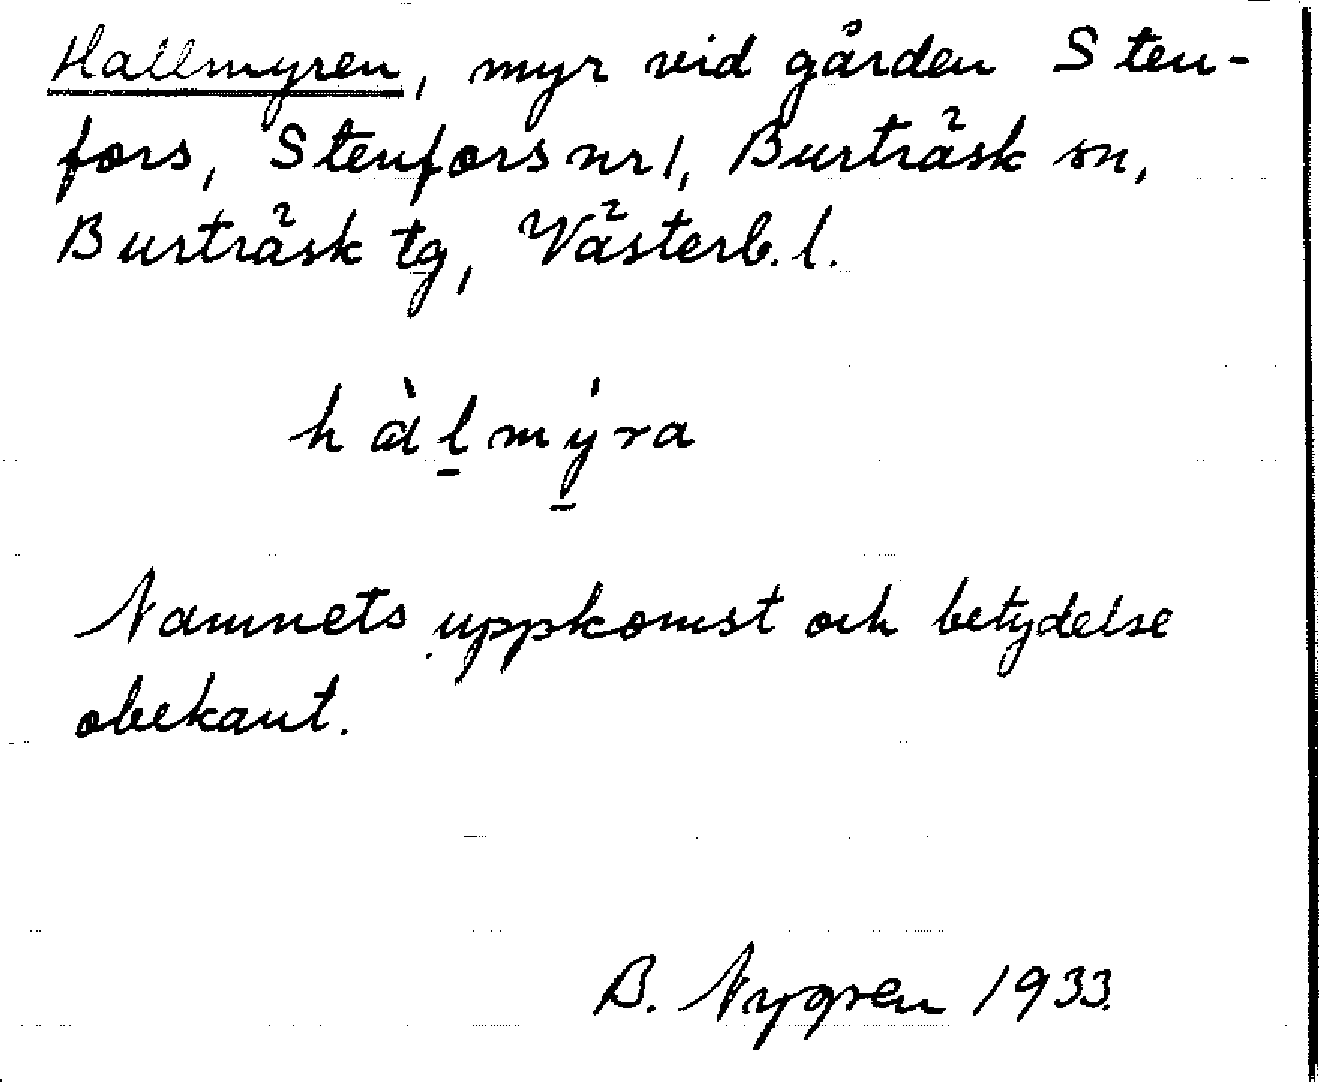 Hallmyren, myr vid gården Sten-
fors, Stenfors nr 1, Burträsk sn,
Burträsk tg, Västerb. l.
hàl̲mý̲ra
Namnets uppkomst och betydelse
obekant.
B. Nygren 1933.